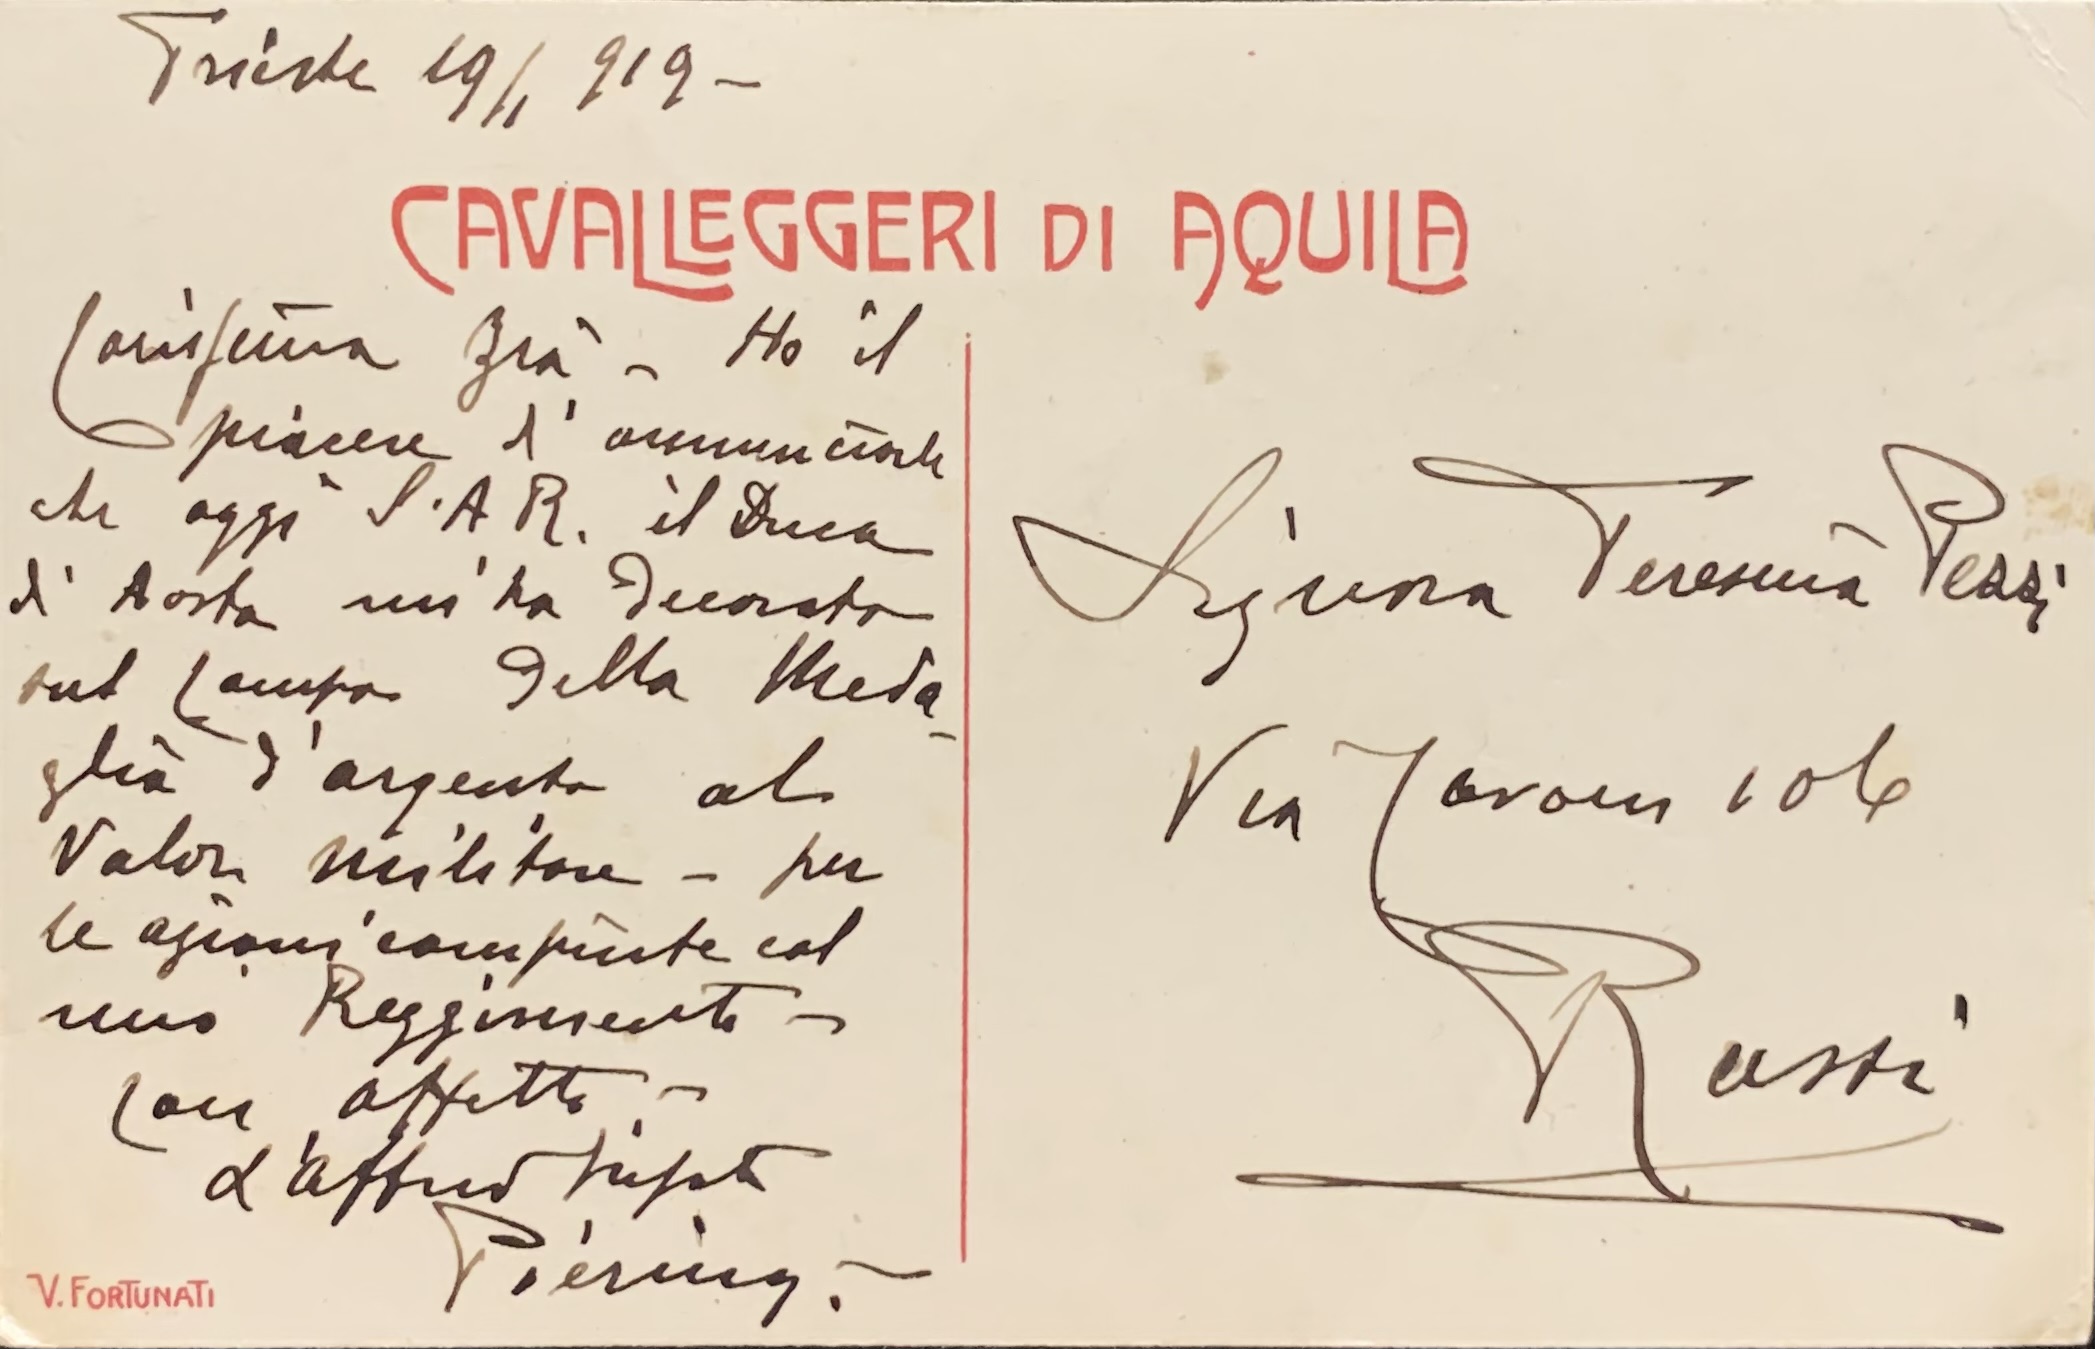 Trieste 19/11 919 –
CAVALLEGGERI DI AQUILA
Carissima Zia – Ho il
piacere d'annunciarle
che oggi S.A R. il Duca
d'Aosta mi ha decorato
sul Campo della Meda-
glia d'argento al
Valor militare – per
le azioni compiute col
mio Reggimento –
Con affetto –
L'affmo nipote
Pierino. –
V. FORTUNATI
Signora Teresina Pezzi
Via Cavour 106
Russi